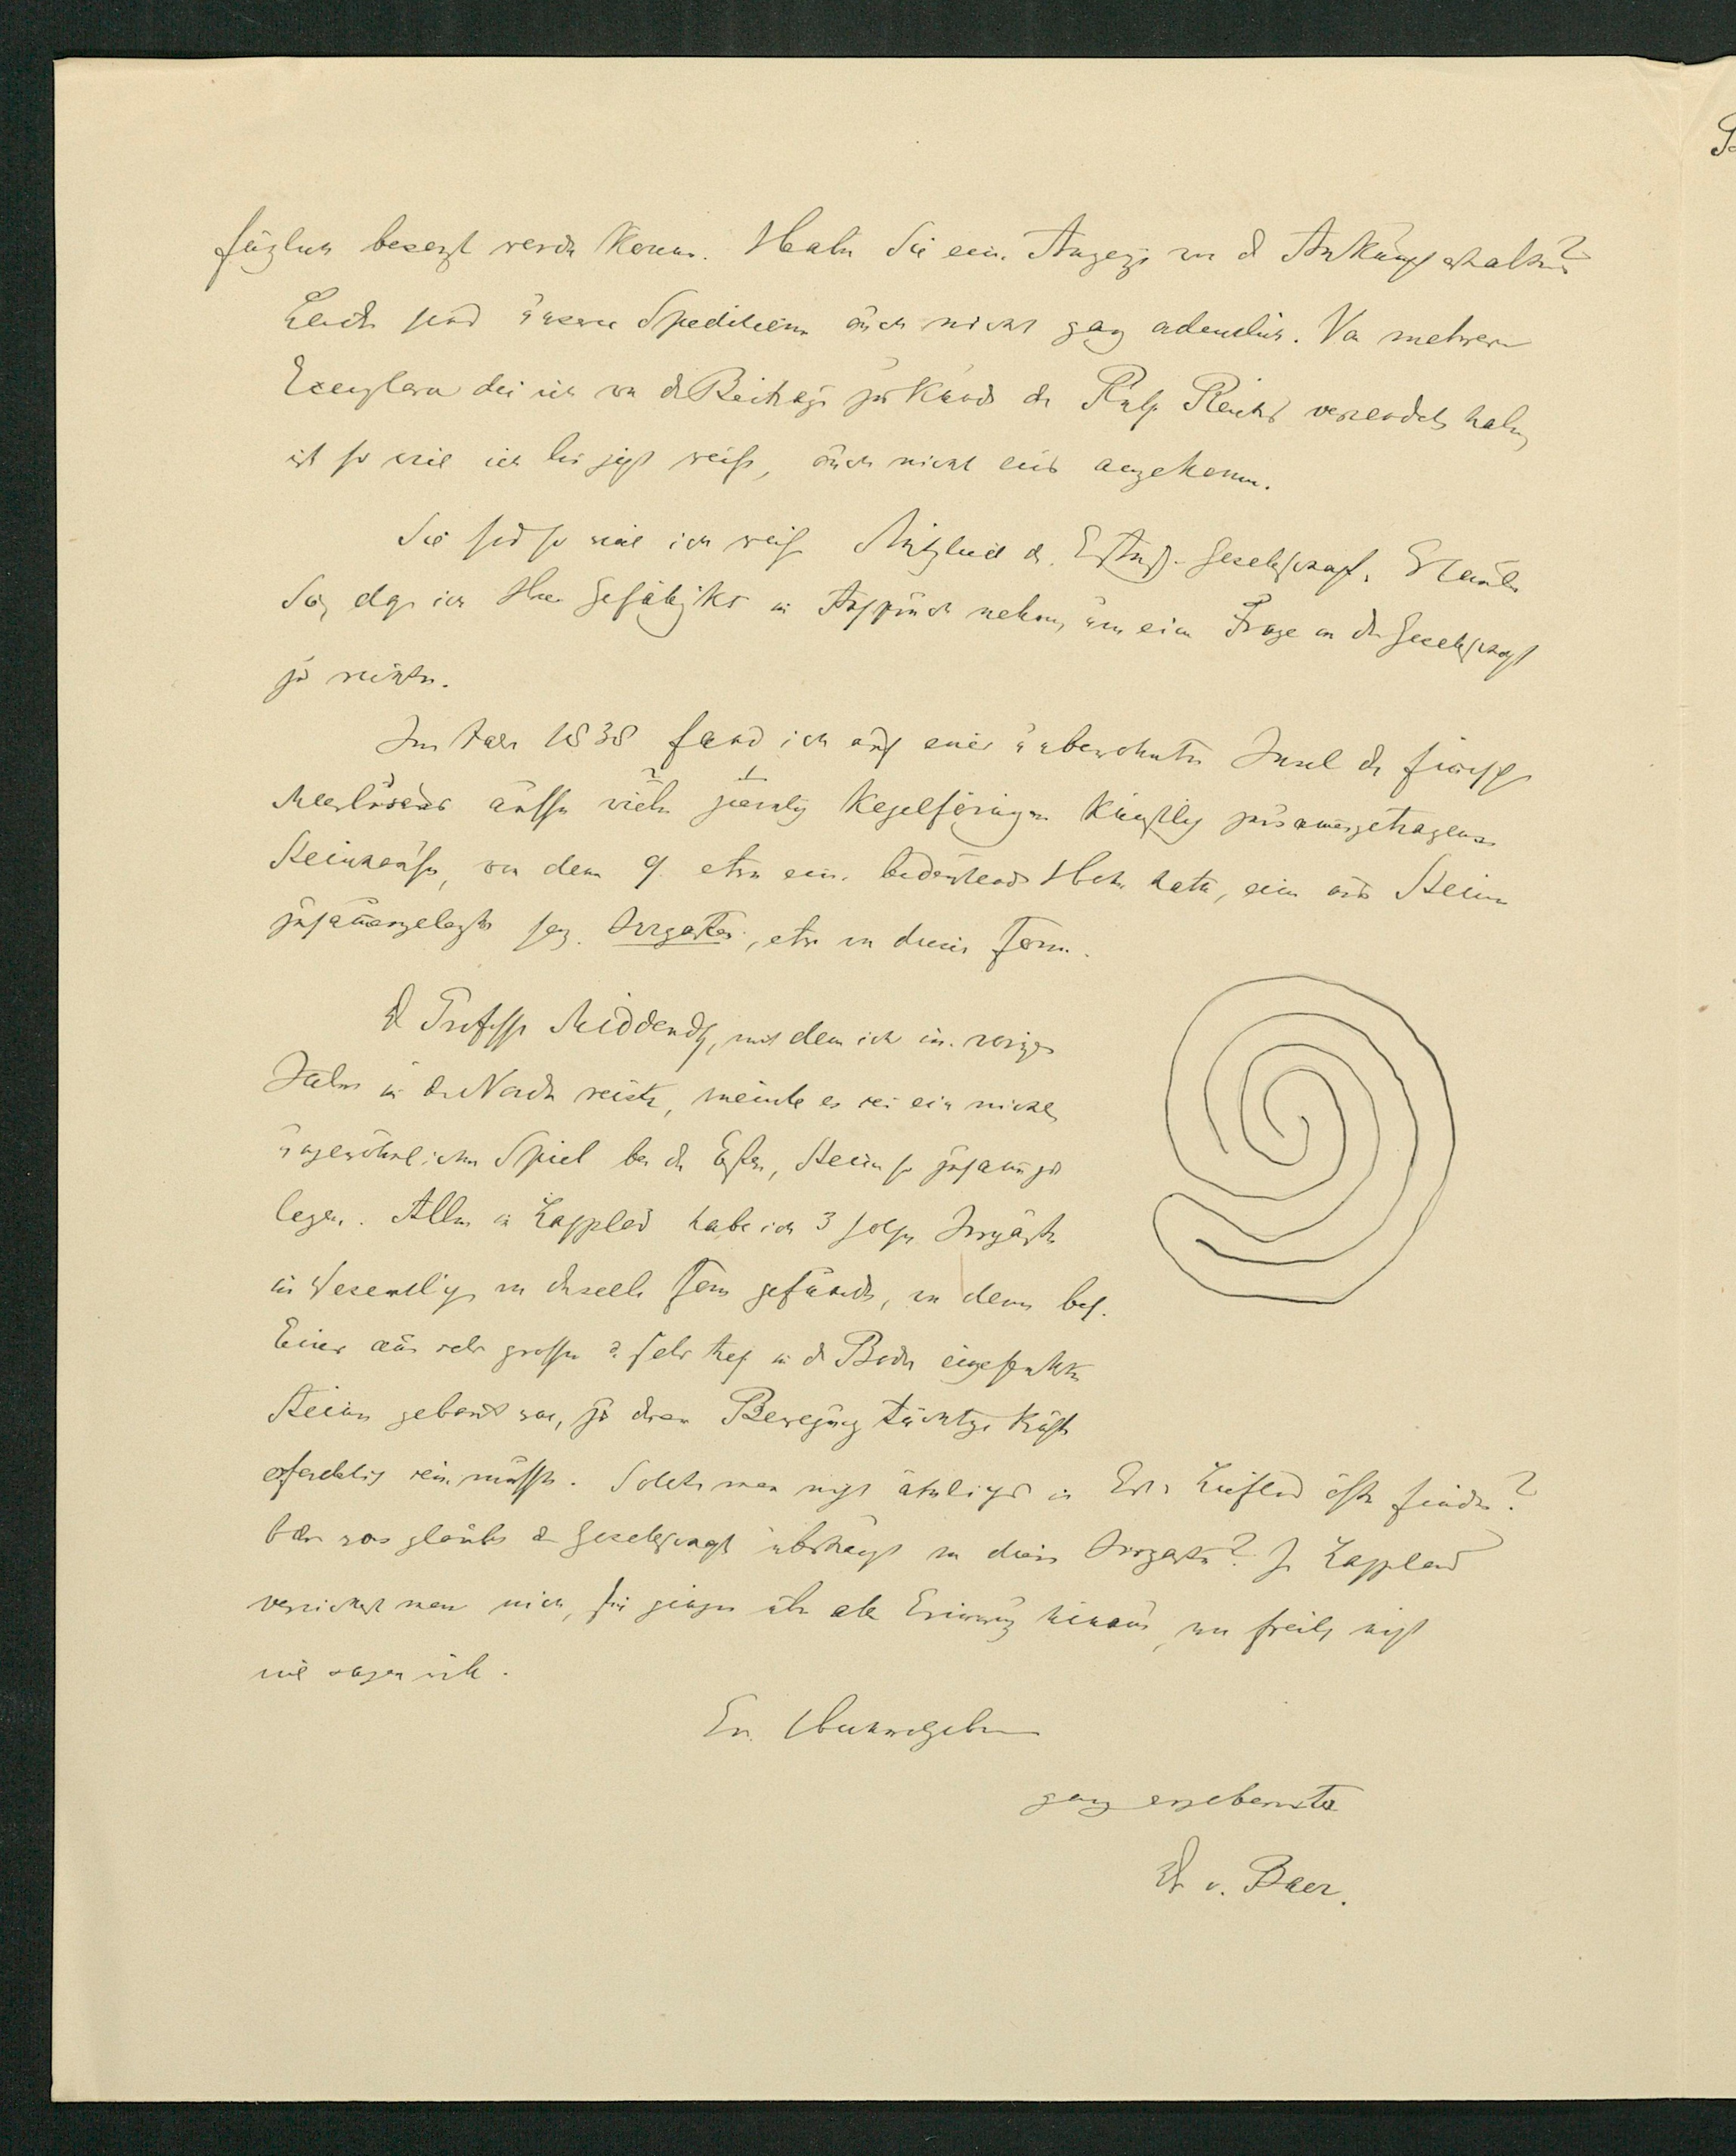 füglich besorgt werden können. Haben Sie eine Anzeige von d Ankunft erhalten?
Leider sind unsere Speditionen auch nicht ganz ordentlich. Von mehreren
Exemplaren die ich von den Beiträgen zur Kunde des Russ. Reichs versendet habe,
ist so viel ich bis jetzt weiß, auch nicht eins angekommen.
Sie sind so viel ich weiß Mitglied d. Esthn. Gesellschaft. Erlauben
Sie, daß ich Ihre Gefälligkt in Anspruch nehme, um eine Frage an die Gesellschaft
zu richten.
Im Jahr 1838 fand ich auf einer unbewohnten Insel des finnischen
Meerbusens außer vielen ziemlich kegelförmigen künstlich zusammengetragenen
Steinhaufen, von denen 9 etwa eine bedeutende Höhe hatten, einen aus Steinen
zusammengelegten sog. Irrgarten, etwa von dieser Form.
D Professor Middendorff, mit dem ich im vorigen
Jahr in den Norden reiste, meinte es sei ein nicht
ungewöhnliches Spiel bei den Esten, Steine so zusammen zu
legen. Allein in Lappland habe ich 3 solche Irrgärten
im Wesentlichen von derselben Form gefunden, von denen bes.
Einer aus sehr großen u. sehr tief in d Boden eingesenkten
Steinen gebaut war, zu deren Bewegung tüchtige Kräfte
erforderlich sein mußten. Sollte man nicht ähnliches in Est- u Liefland öfter finden?
Oder was glaubt die Gesellschaft überhaupt von diesen Irrgärten? In Lappland
versichert man mich, sie gingen über alle Erinnerung hinaus, was freilich nicht
viel sagen will.
Ew. Hochwohlgeboren
ganz ergebenster
Dr v. Baer.